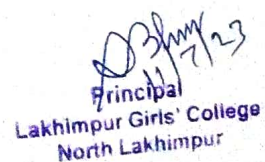 11/7/23
Principal
Lakhimpur Girls' College
North Lakhimpur